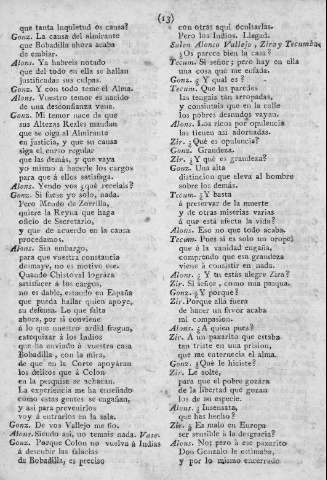 (13)
que tanta inquietud os causa?
Gonz. La causa del almirante
que Bobadilla ahora acaba
de embiar.
Alons. Ya habreis notado
que del todo en ella se hallan
justificadas sus culpas.
Gonz. Y con todo teme el Alma.
Alons. Vuestro temor es nacido
de una desconfianza vana.
Gonz. Mi temor nace de que
sus Altezas Reales mandan
que se oiga al Almirante
en justicia, y que su causa
siga el curso regular
que las demás, y que vaya
yo mismo á hacerle los cargos
para que á ellos satisfaga.
Alons. Yendo vos ¿qué recelais?
Gonz. Si fuese yo solo, nada.
Pero Mendo de Zorrilla,
quiere la Reyna que haga
oficio de Secretario,
y que de acuerdo en la causa
procedamos.
Alons. Sin embargo,
para que vuestra constancia
desmaye, no es motivo ese.
Quando Christoval lográra
satisfacer á los cargos,
no es dable, estando en España
que pueda hallar quien apoye,
su defensa. Lo que falta
ahora, por si conviene
á lo que nuestro ardid fragua,
catequizar á los Indios
que ha enviado á vuestra casa
Bobadilla, con la mira,
de que en la Corte apoyáran
los delitos que á Colon
en la pesquisa se achacan.
La experiencia me ha enseñado
como estas gentes se engañan,
y asi para prevenirlos
voy á entrarlos en la sala.
Gonz. De vos Vallejo me fio.
Alons. Siendo asi, no temais nada. Vase.
Gonz. Porque Colon no vuelva á Indias
á descubrir las falacias
de Bobadilla, es preciso
con otras aqui deslumbrarlas.
Pero los Indios. Llegad.
Salen Alonso Vallejo, Zira y Tecumba.
¿Os parece bien la casa?
Tecum. Si señor; pero hay en ella
una cosa que me enfada.
Gonz. ¿Y qual es?
Tecum. Que las paredes
las tengais tan arropadas,
y consintais que en la calle
los pobres desnudos vayan.
Alons. Los ricos por opulencia
las tienen asi adornadas.
Zir. ¿Qué es opulencia?
Gonz. Grandeza.
Zir. ¿Y qué es grandeza?
Gonz. Una alta
distincion que eleva al hombre
sobre los demás.
Tecum. ¿Y basta
á preservar de la muerte
y de otras miserias varias
á que está afecta la vida?
Alons. Eso no que todo acaba.
Tecum. Pues si es solo un oropel
que á la vanidad engaña,
comprendo que esa grandeza
viene á consistir en nada.
Alons. ¿Y tu estás alegre Zira?
Zir. Si señor, como una pasqua.
Gonz. ¿Y porque?
Zir. Porque ella fuera
de hacer un favor acaba
mi compasion.
Alons. ¿A quien pura?
Zir. A un paxarito que estaba
tan triste en una prision,
que me enternecia el alma.
Gonz. ¿Qué le hiciste?
Zir. Le solté,
para que el pobre gozára
de la libertad que gozan
los de su especie.
Alons. ¿Insensata,
que has hecho?
Zir. ¿Es malo en Europa
ser sensible á la desgracia?
Alons. No; pero á ese paxarito
Don Gonzalo le estimaba,
y por lo mismo encerrado